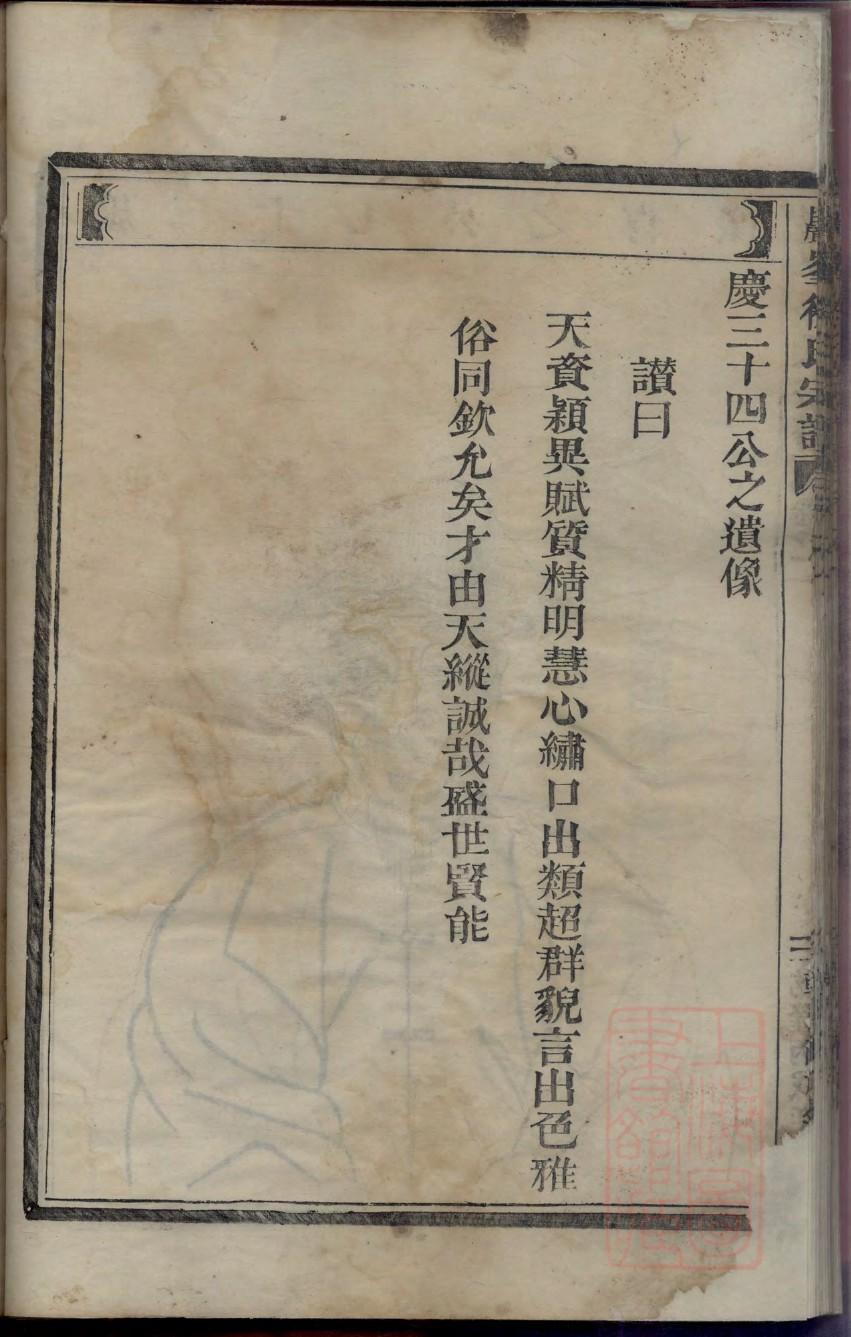 慶三十四公之遺像
讃曰
天資穎異賦質精明慧心繡口出類超群貌言出色雅
俗同欽允矣才由天縱誠哉盛世賢能
徐氏宗譜
上海圖書館藏